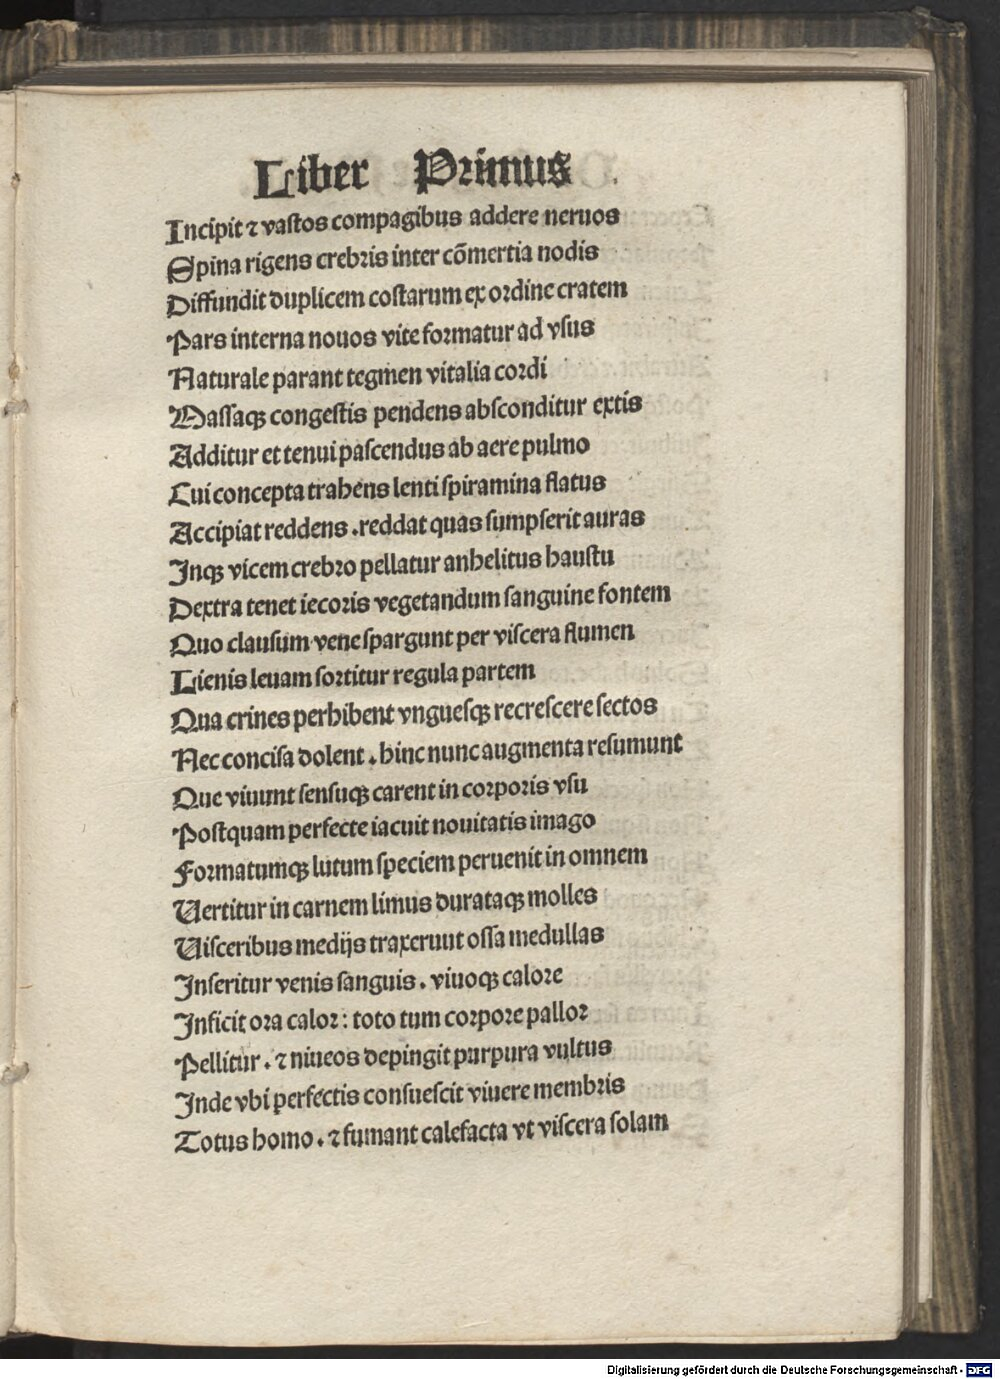 Liber Primus
Incipit ⁊ vastos compagibus addere neruos
Spina rigens crebris inter cõmertia nodis
Diffundit duplicem costarum ex ordine cratem
Pars interna nouos vite formatur ad vsus
Naturale parant tegmen vitalia cordi
Massaqꝫ congestis pendens absconditur extis
Additur et tenui pascendus ab aere pulmo
Cui concepta trahens lenti spiramina flatus
Accipiat reddens .reddat quas sumpserit auras
Inqꝫ vicem crebro pellatur anhelitus haustu
Dextra tenet iecoris vegetandum sanguine fontem
Quo clausum vene spargunt per viscera flumen
Lienis leuam sortitur regula partem
Qua crines perhibent vnguesqꝫ recrescere sectos
Nec concisa dolent . hinc nunc augmenta resumunt
Que viuunt sensuqꝫ carent in corporis vsu
Postquam perfecte iacuit nouitatis imago
Formatumqꝫ lutum speciem peruenit in omnem
Uertitur in carnem limus durataqꝫ molles
Uisceribus medijs traxeruut ossa medullas
Inseritur venis sanguis . viuoqꝫ calore
Inficit ora calor : toto tum corpore pallor
Pellitur . ⁊ niueos depingit purpura vultus
Inde vbi perfectis consuescit viuere membris
Totus homo . ⁊ fumant calefacta vt viscera solam
Digitalisierung gefördert durch die Deutsche Forschungsgemeinschaft - DFG